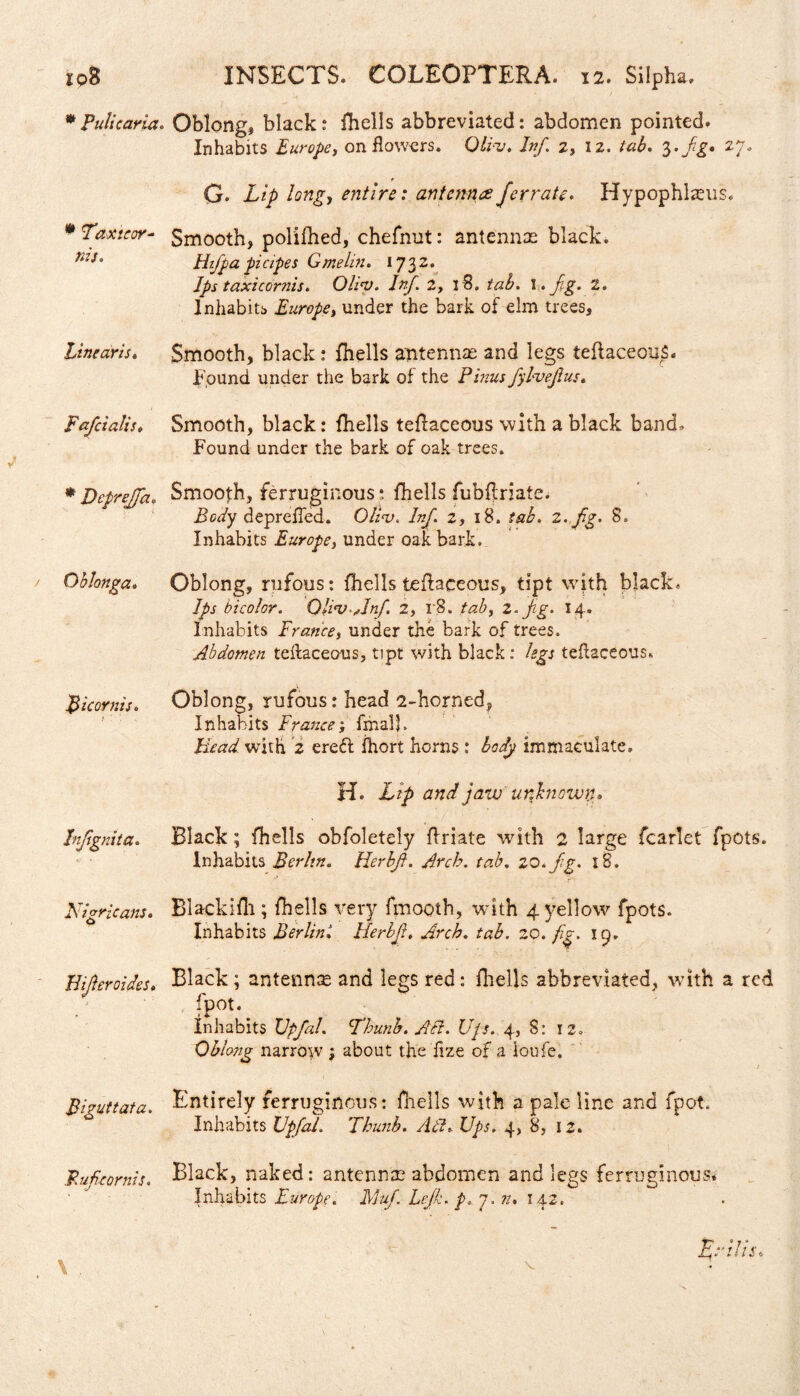 108 INSECTS. COLEOPTERA. 12. Silpha.
* Pulicaria. Oblong, black: ſhells abbreviated: abdomen pointed.
Inhabits Europe, on flowers. Oliv. Inſ. 2, 12. tab. 3. fig. 27.
G. Lip long, entire: antennæ ſerrate. Hypophlæus.
* Taxicor- Smooth, poliſhed, cheſnut: antennæ black.
nis. Hiſpa picipes Gmelin. 1732.
Ips taxicornis. Oliv. Inſ. 2, 18. tab. 1. fig. 2.
Inhabits Europe, under the bark of elm trees,
Linearis. Smooth, black: ſhells antennæ and legs teſtaceous.
Found under the bark of the Pinus ſylveſtus.
Faſcialis. Smooth, black: ſhells teſtaceous with a black band.
Found under the bark of oak trees.
* Depreſſa. Smooth, ferruginous: ſhells ſubſtriate.
Body depreſſed. Oliv. Inſ. 2, 18. tab. 2. fig. 8.
Inhabits Europe, under oak bark.
Oblonga. Oblong, rufous: ſhells teſtaceous, tipt with black.
Ips bicolor. Oliv. Inſ. 2, 18. tab, 2. fig. 14.
Inhabits France, under the bark of trees.
Abdomen teſtaceous, tipt with black: legs teſtaceous.
Bicornis. Oblong, rufous: head 2-horned,
Inhabits France; ſmall.
Head with 2 erect ſhort horns: body immaculate.
H. Lip and jaw unknown.
Inſignita. Black; ſhells obſoletely ſtriate with 2 large ſcarlet ſpots.
Inhabits Berlin. Herbſt. Arch. tab. 20. fig. 18.
Nigricans. Blackiſh; ſhells very ſmooth, with 4 yellow ſpots.
Inhabits Berlin. Herbſt. Arch. tab. 20. fig. 19.
Hiſteroides. Black; antennæ and legs red: ſhells abbreviated, with a red
ſpot.
Inhabits Upſal. Thunb. Act. Upſ. 4, 8: 12.
Oblong narrow; about the ſize of a louſe.
Biguttata. Entirely ferruginous: ſhells with a pale line and ſpot.
Inhabits Upſal. Thunb. Act. Ups. 4, 8, 12.
Ruficornis. Black, naked: antennæ abdomen and legs ferruginous.
Inhabits Europe. Muſ. Leſk. p. 7. n. 142.
Exilis.